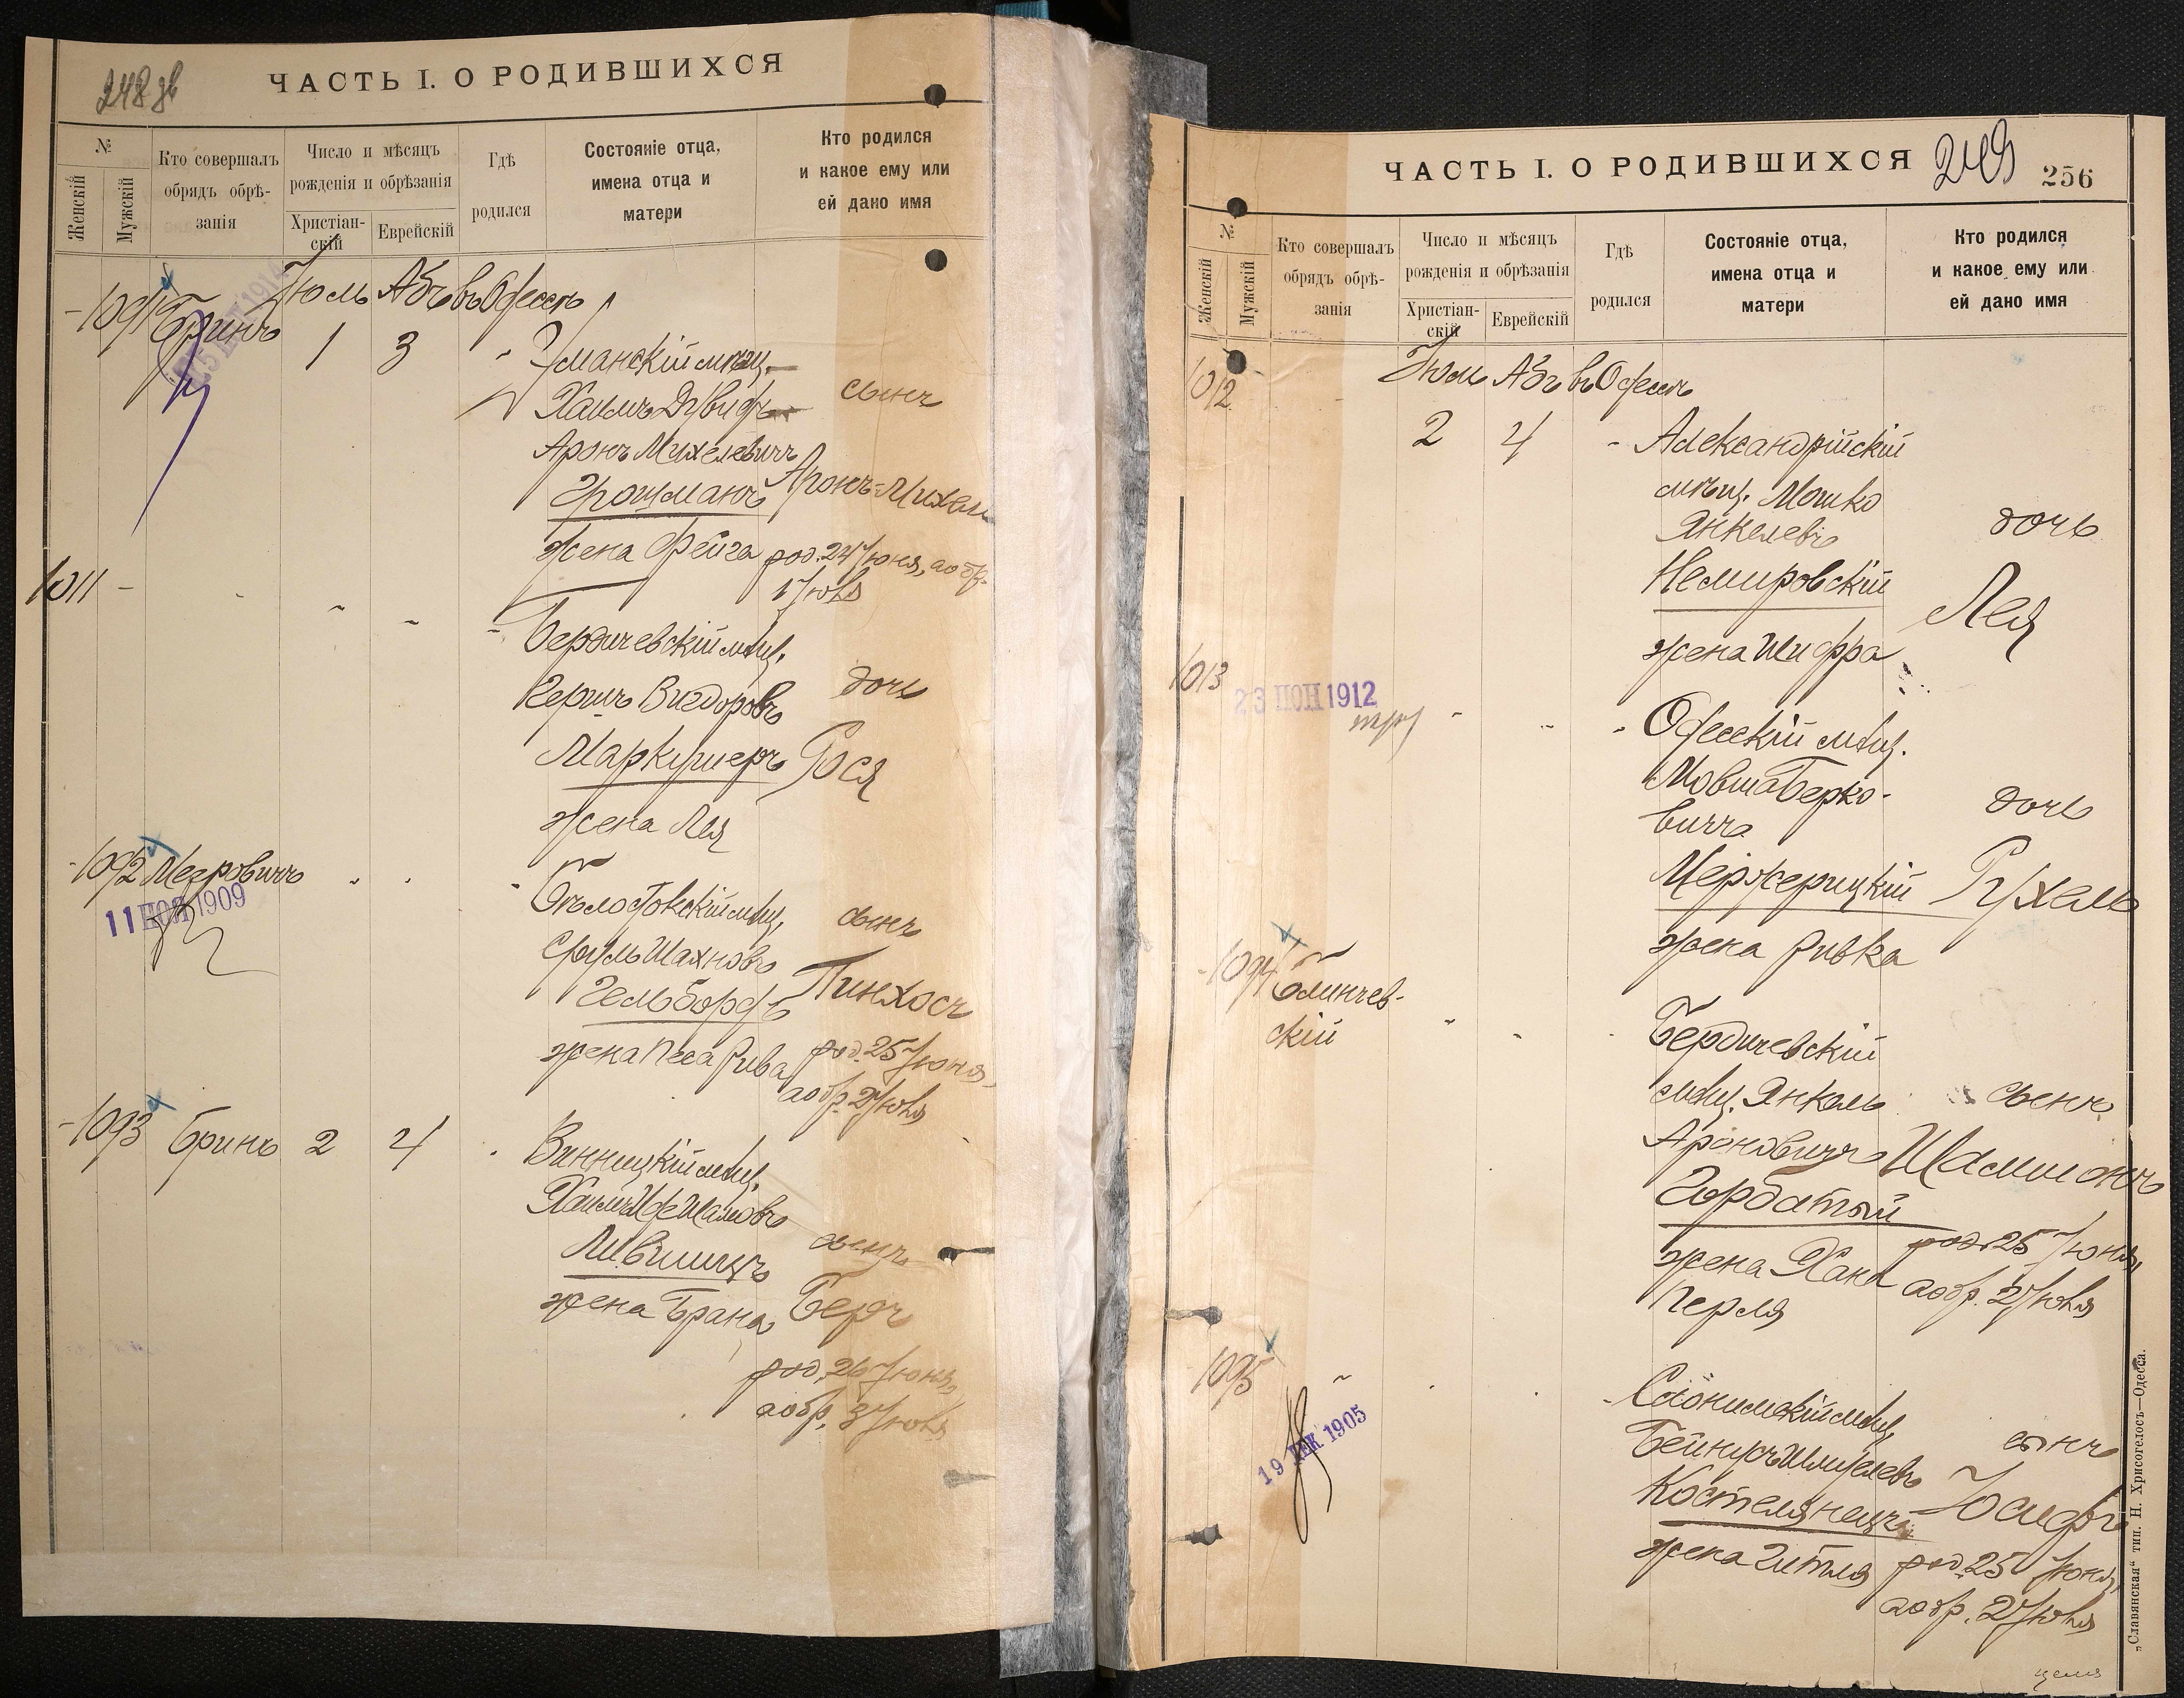 248 об
ЧАСТЬ I. О РОДИВШИХСЯ
№
Женскій
Мужскій
Кто совершалъ
обрядъ обрѣ-
занія
Число и мѣсяцъ
рожденія и обрѣзанія
Христіан-
скій
Еврейскій
Гдѣ
родился
Состояніе отца,
имена отца и
матери
Кто родился
и какое ему или
ей дано имя
Іюль Абъ въ Одессѣ
Бринъ
1 3
Уманскій мѣщ.
Хаимъ Дувидъ
сынъ
Аронъ Михелевичъ
Грошманъ Аронъ-Михель
жена Фейга род. 24 Іюня, а обр.
1 Іюля
1011 -
Бердичевскій мѣщ.
Гершъ Вигдоровъ дочь
Маркушеръ Рося
жена Лея
- 1092 Мееровичъ
11 НОЯ 1909
мѣщ. сынъ
Сруль Шахновъ
Гельборфъ Пинхосъ
жена Песа Рива род. 25 Іюня,
а обр. 2 Іюля
- 1093 Бринъ 2 4
Винницкій мѣщ.
сынъ
Лившицъ
жена Брана Беръ
род. 26 Іюня,
а обр. 3 Іюля
ЧАСТЬ I. О РОДИВШИХСЯ
249 256
№
Женскій
Мужскій
Кто совершалъ
обрядъ обрѣ-
занія
Число и мѣсяцъ
рожденія и обрѣзанія
Христіан-
скій
Еврейскій
Гдѣ
родился
Состояніе отца,
имена отца и
матери
Кто родился
и какое ему или
ей дано имя
1012 Іюль Абъ въ Одессѣ
2 4 - Александрійскій
мѣщ. Мошко
Янкелевъ дочь
Немировскій
Лея
жена Шифра
1013
23 ІЮН 1912
Одесскій мѣщ.
Мовша Берко-
вичъ дочь
Межерицкій Рухель
жена Ривка
- 1094 Блинчев-
скій
Бердичевскій
мѣщ. Янкель сынъ
Ароновичъ Шамшонъ
Горбатый
род. 25 Іюня,
жена Хана а обр. 2 Іюля
Перля
1095
19 ДЕК 1905
Слонимскій мѣщ.
сынъ
Бейнусъ Шмулевъ
Костелянецъ Іосифъ
жена Гитля род. 25 Іюня,
а обр. 2 Іюля
„Славянская“ тип. Н. Хрисогелосъ—Одесса.